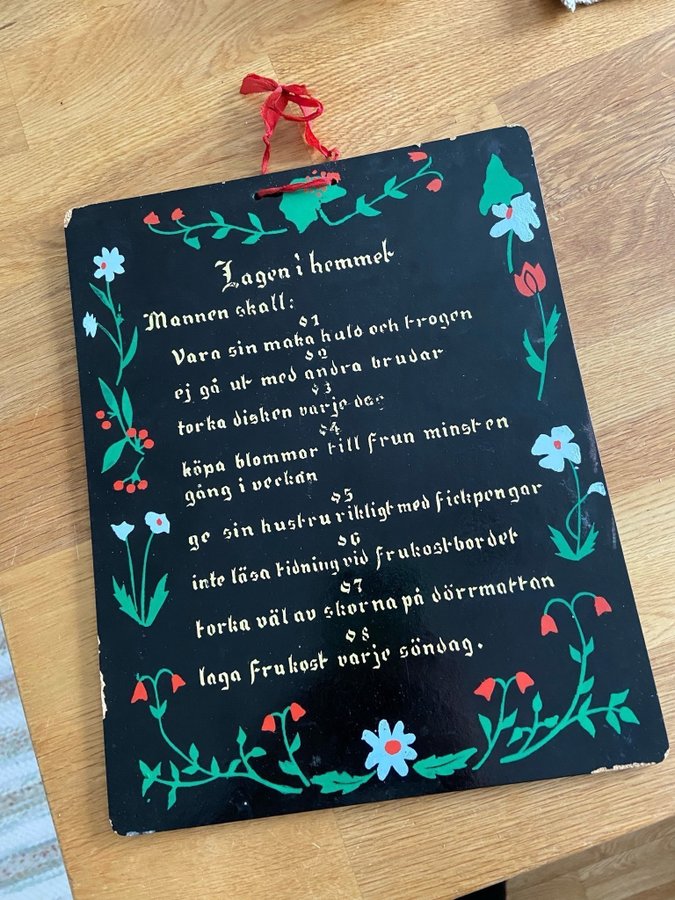 Lagen i hemmet
Mannen skall:
§1
Vara sin maka huld och trogen
§2
ej gå ut med andra brudar
§3
torka disken varje dag
§4
köpa blommor till frun minst en
gång i veckan
§5
ge sin hustru rikligt med fickpengar
§6
inte läsa tidning vid frukostbordet
§7
torka väl av skorna på dörrmattan
§8
laga frukost varje söndag.